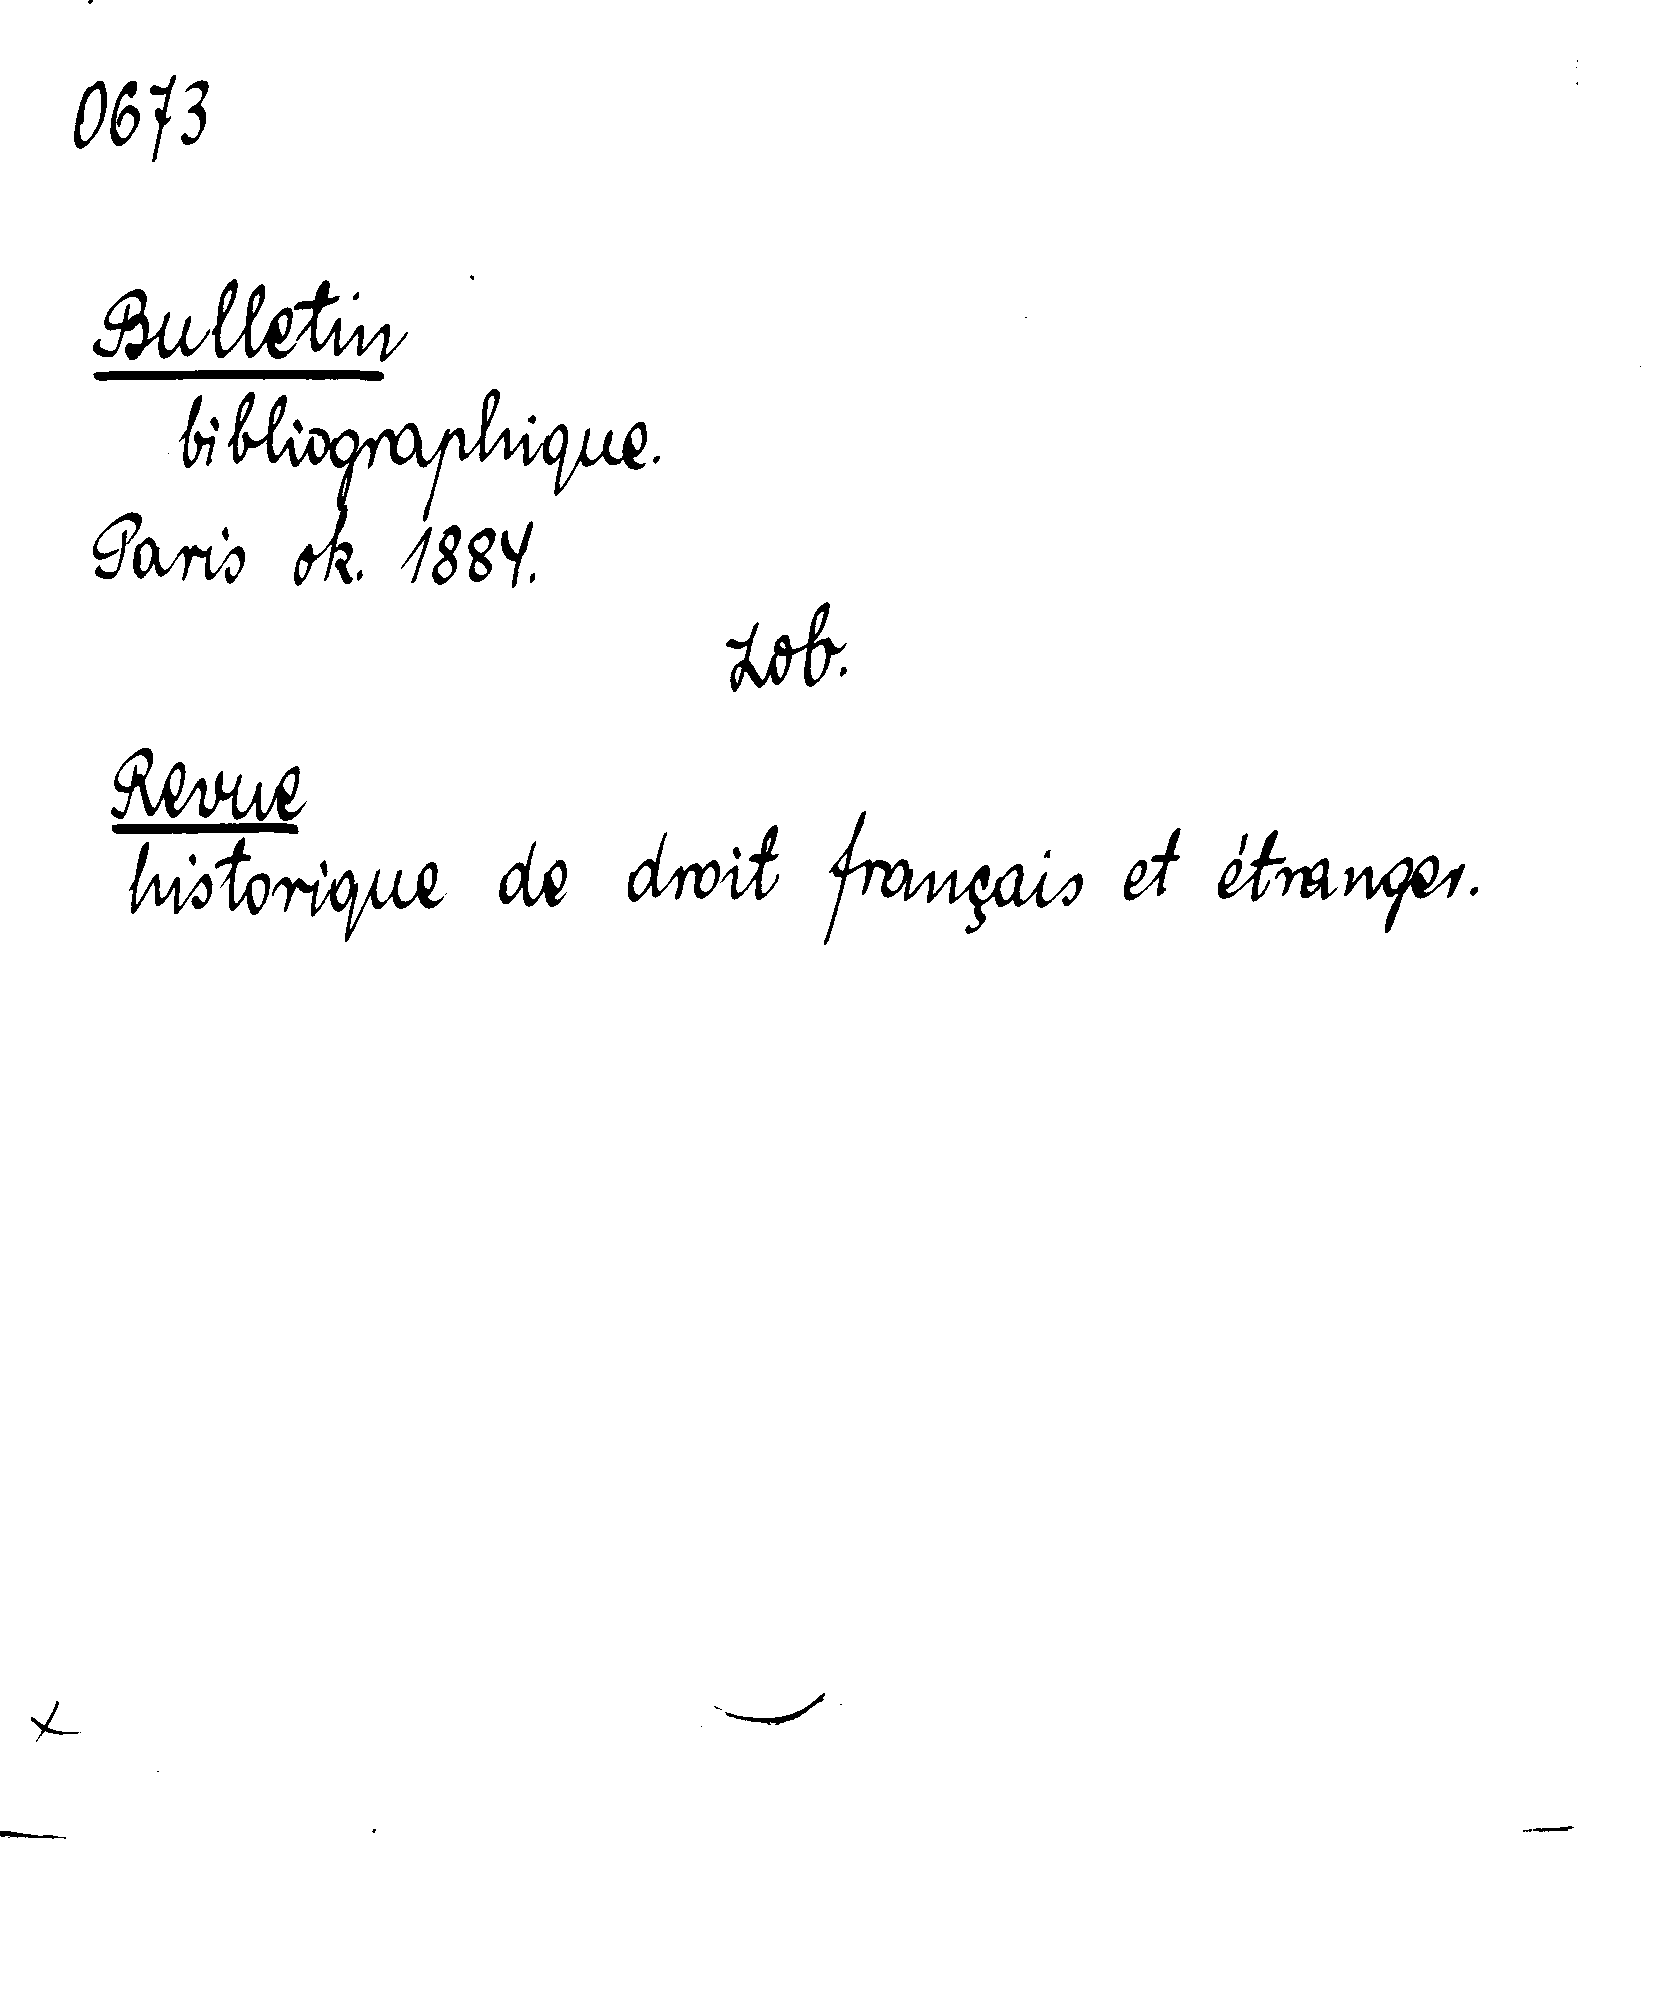 0673
Bulletin
bibliographique.
Paris ok. 1884.
zob.
Revue
historique de droit français et étranger.